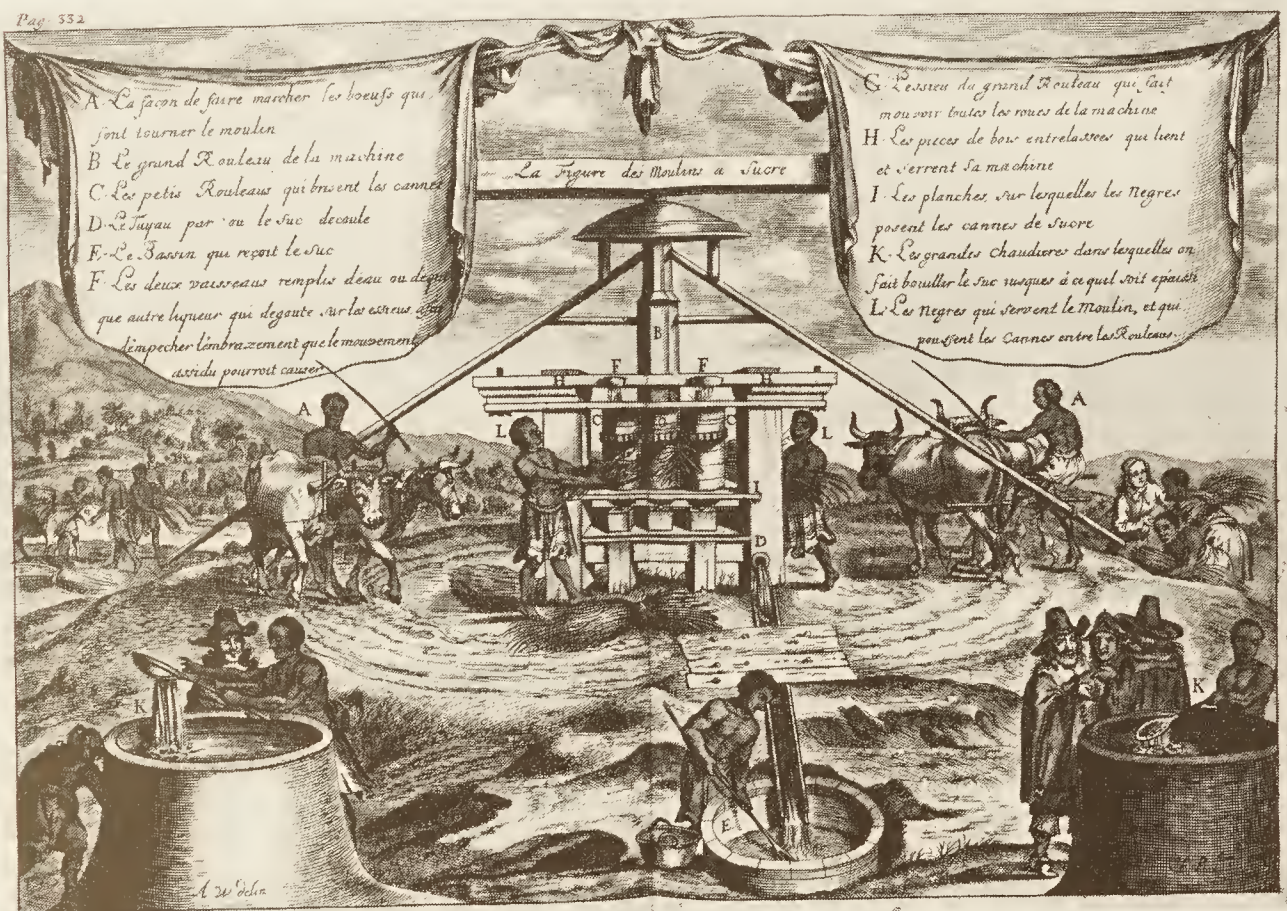 Pag. 332
A. La façon de faire marcher les boeufs qui
font tourner le moulin
B Le grand Rouleau de la machine
C. Les petis Rouleaus qui brisent les cannes
D. Le Tuyau par ou le suc decoule
E. Le Bassin qui reçoit le suc
F. Les deux vaisseaus remplis déau ou de
que autre liqueur qui degoute sur les essieus
démpecher lémbrazement que le mouvement
assidu pourroit causer
La Figure des Moulins a Sucre
G. Léssieu du grand Rouleau qui fait
mouvoir toutes les roues de la machine
H. Les pieces de bois entrelassées qui lient
et serrent sa machine
I. Les planches, sur lesquelles les Negres
posent les cannes de sucre
K. Les grandes Chaudieres dans lesquelles on
fait bouiller le suc jusques á ce quil soit epaissi
L. Les Negres qui servent le Moulin, et qui
poussent les Cannes entre les Rouleaus.
B
F F
H H
A A
C G C
L L
I
D
K K
E
A W delin